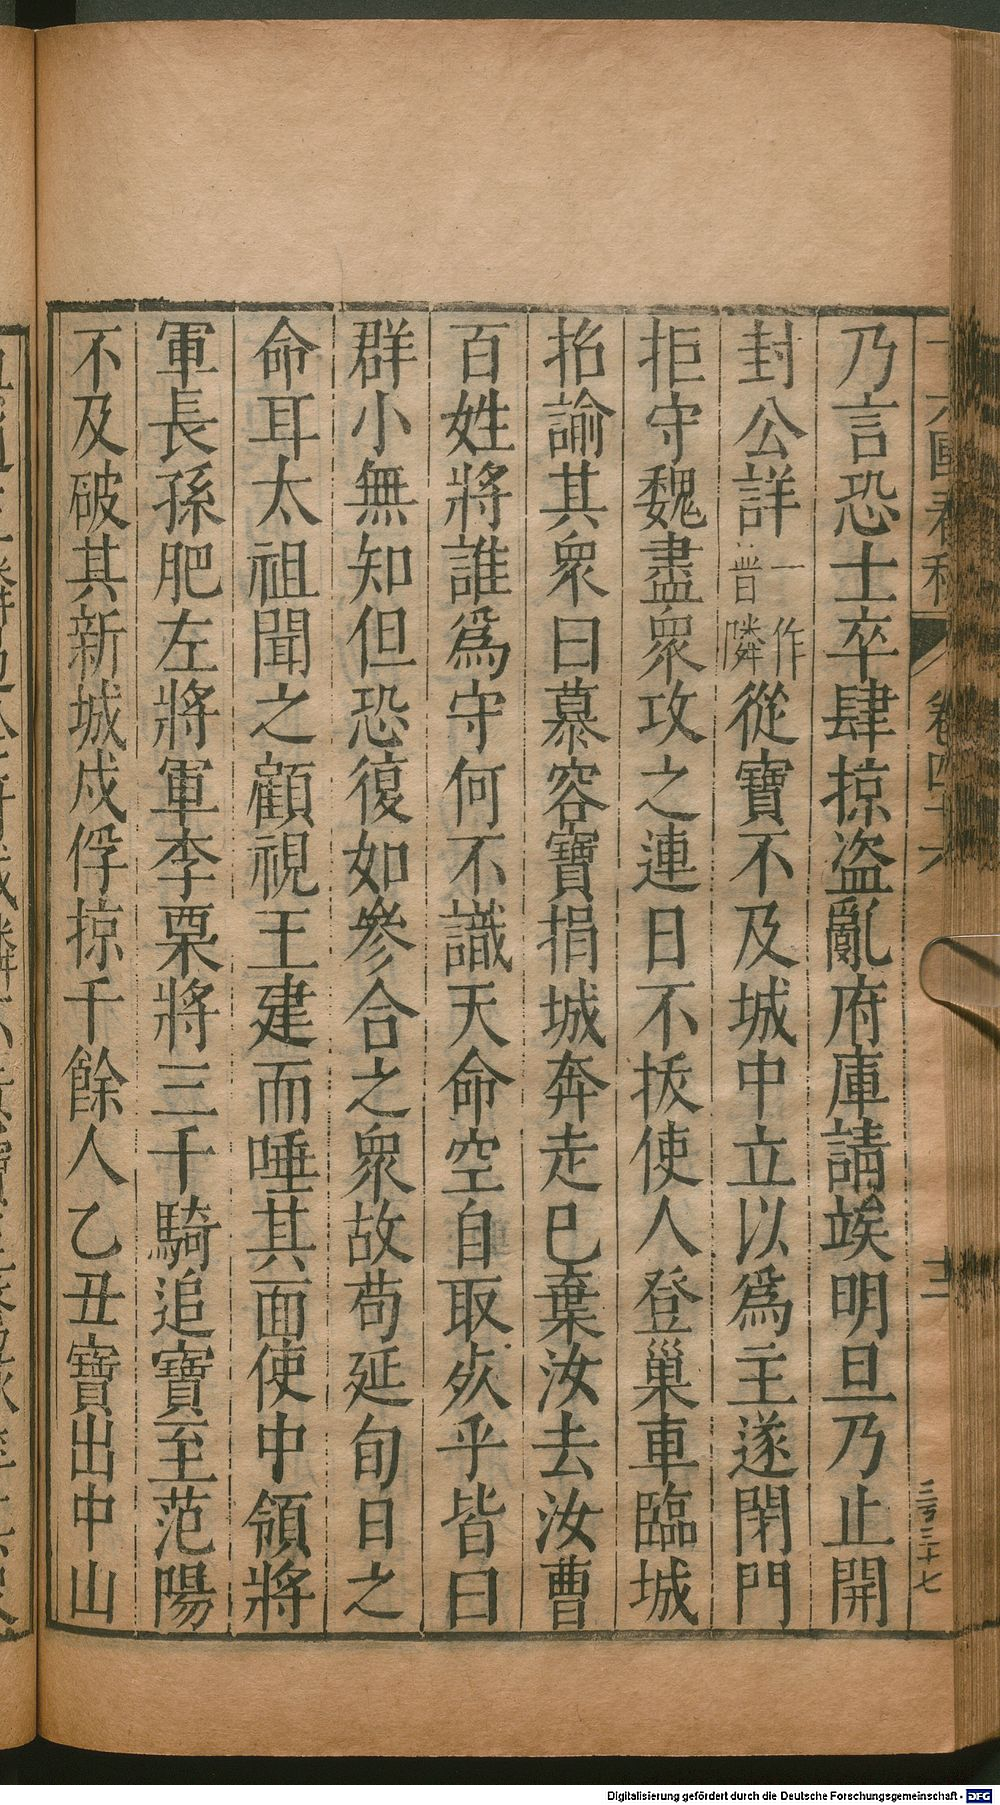 乃言恐士卒肆掠盗亂府庫請竢明旦乃止開
封公詳一作普隣從寶不及城中立以爲主遂閉門
拒守魏盡衆攻之連日不拔使人登巢車臨城
招諭其衆曰慕容寶捐城奔走巳棄汝去汝曹
百姓將誰爲守何不識天命空自取死乎皆曰
群小無知但恐復如參合之衆故苟延旬日之
命耳太祖聞之顧視王建而唾其面使中領將
軍長孫肥左將軍李栗將三千騎追寶至范陽
不及破其新城戍俘掠千餘人乙丑寶出中山
卷四十六
十二
Digitalisierung gefördert durch die Deutsche Forschungsgemeinschaft - DFG